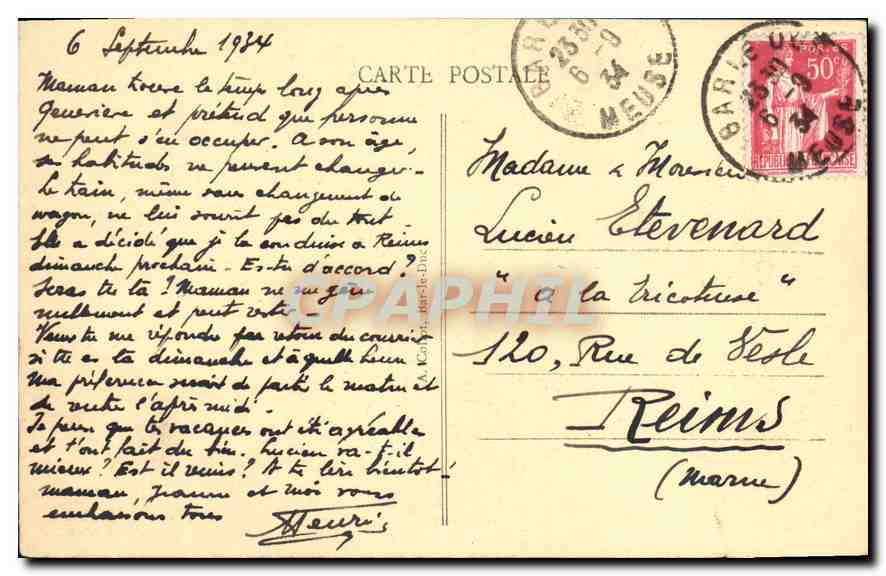 6 Septembre 1934
CARTE POSTALE
Maman trouve le temps long après
Geneviève et prétend que personne
ne peut s'en occuper. A son âge,
ses habitudes ne peuvent changer.
Le train, même sans changement de
wagon, ne lui sourit pas du tout
Elle a décidé que je la conduise à Reims
dimanche prochain - Es-tu d'accord?
Seras tu là? Maman ne me gêne
nullement et peut rester.
Veux tu me répondre par retour du courrier
si tu es là dimanche et à quelle heure
Ma préférence serait de partir le matin et
de rentrer l'après midi.
Je pense que tes vacances ont été agréables
et t'ont fait du bien. Lucien va-t-il
mieux? Est il venu? A te lire bientôt
maman, Jeanne et moi vous
embrassons tous
Henri
A. Collot, Bar-le-Duc
BAR LE DUC
23 30
6 -9
34
MEUSE
BAR LE DUC
23 30
6 -9
34
MEUSE
POSTES
50c
REPUBLIQUE FRANÇAISE
Madame & Monsieur
Lucien Etevenard
"à la Tricoteuse"
120, Rue de Vesle
Reims
(Marne)
CPAPHIL